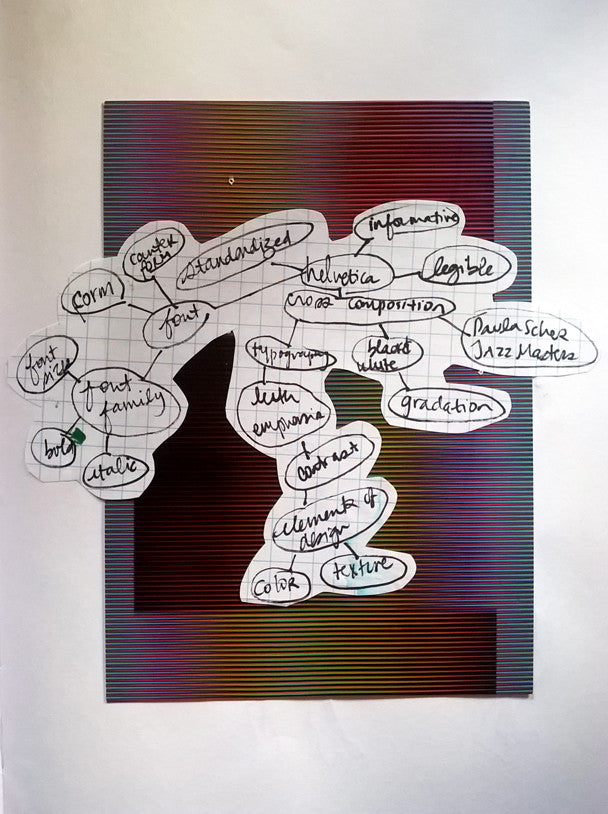 informative
counter
form
standardized
helvetica
legible
corm
font
cross composition
Paula Scher
Jazz Masters
typography
black &
white
font
size
font
family
with
emphasis
gradation
bold
italic
contrast
elements of
design
color
texture